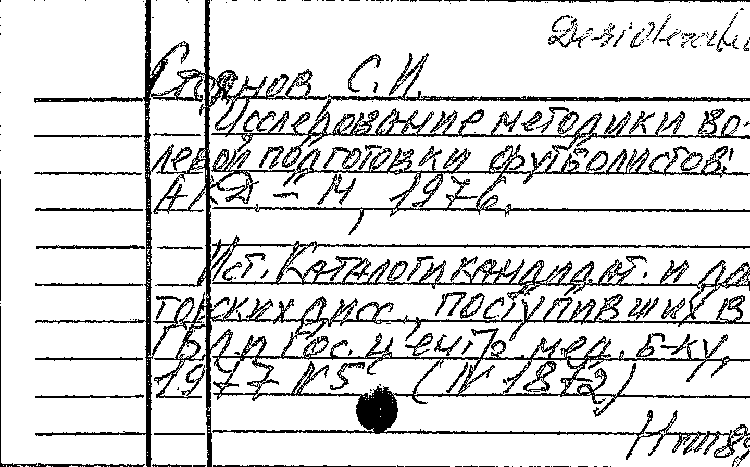 Desiderata
Стоянов С.И.
Исследование методики во-
левой подготовки футболистов:
АКД. – М, 1976.
Ист. Каталоги кандидат. и док
торских дисс., поступивших в
ГБЛ и Гос. центр. мед. б-ку,
1977 N5 (N 1872)